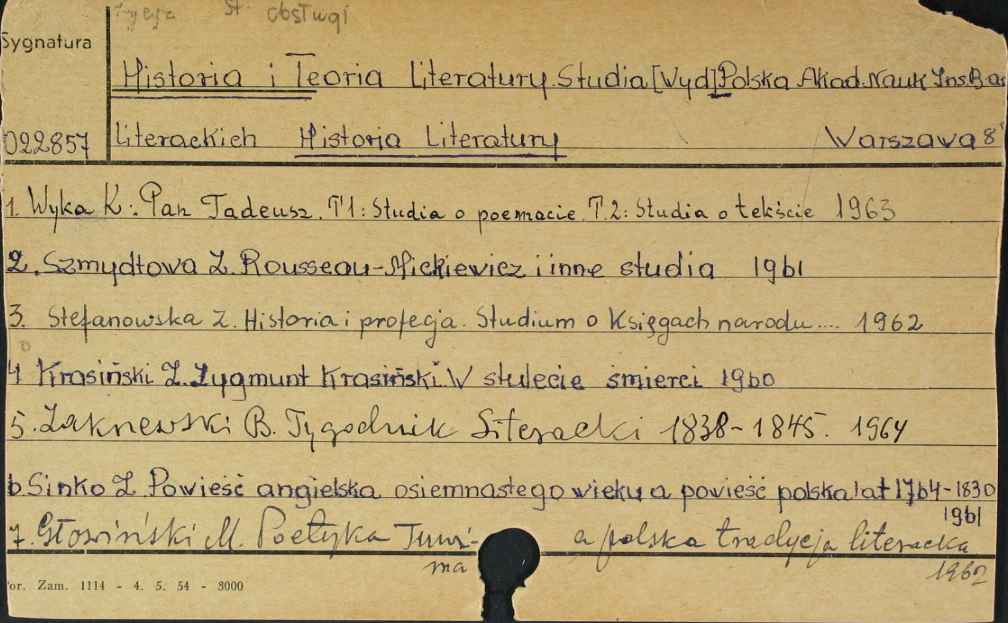 st. obsługi
Sygnatura
Historia i Teoria Literatury. Studia [Wyd] Polska Akad. Nauk Ins. Ba
022857 literackich Historia Literatury Warszawa 8°
1. Wyka K.: Pan Tadeusz. T1: Studia o poemacie. T.2: Studia o tekście 1963
2. Szmydtowa Z. Rousseau-Mickiewicz i inne studia 1961
3. Stefanowska Z. Historia i profecja. Studium o Księgach narodu.... 1962
4 Krasiński Z. Zygmunt Krasiński. W stulecie śmierci 1960
5. Zakrzewski B. Tygodnik Literacki 1838-1845. 1964
6. Sinko Z. Powieść angielska osiemnastego wieku a powieść polska lat 1764-1830
1961
7. Głowiński M. Poetyka Tuwi- a polska tradycja literacka
ma 1962
or. Zam. 1114 - 4. 5. 54 - 3000